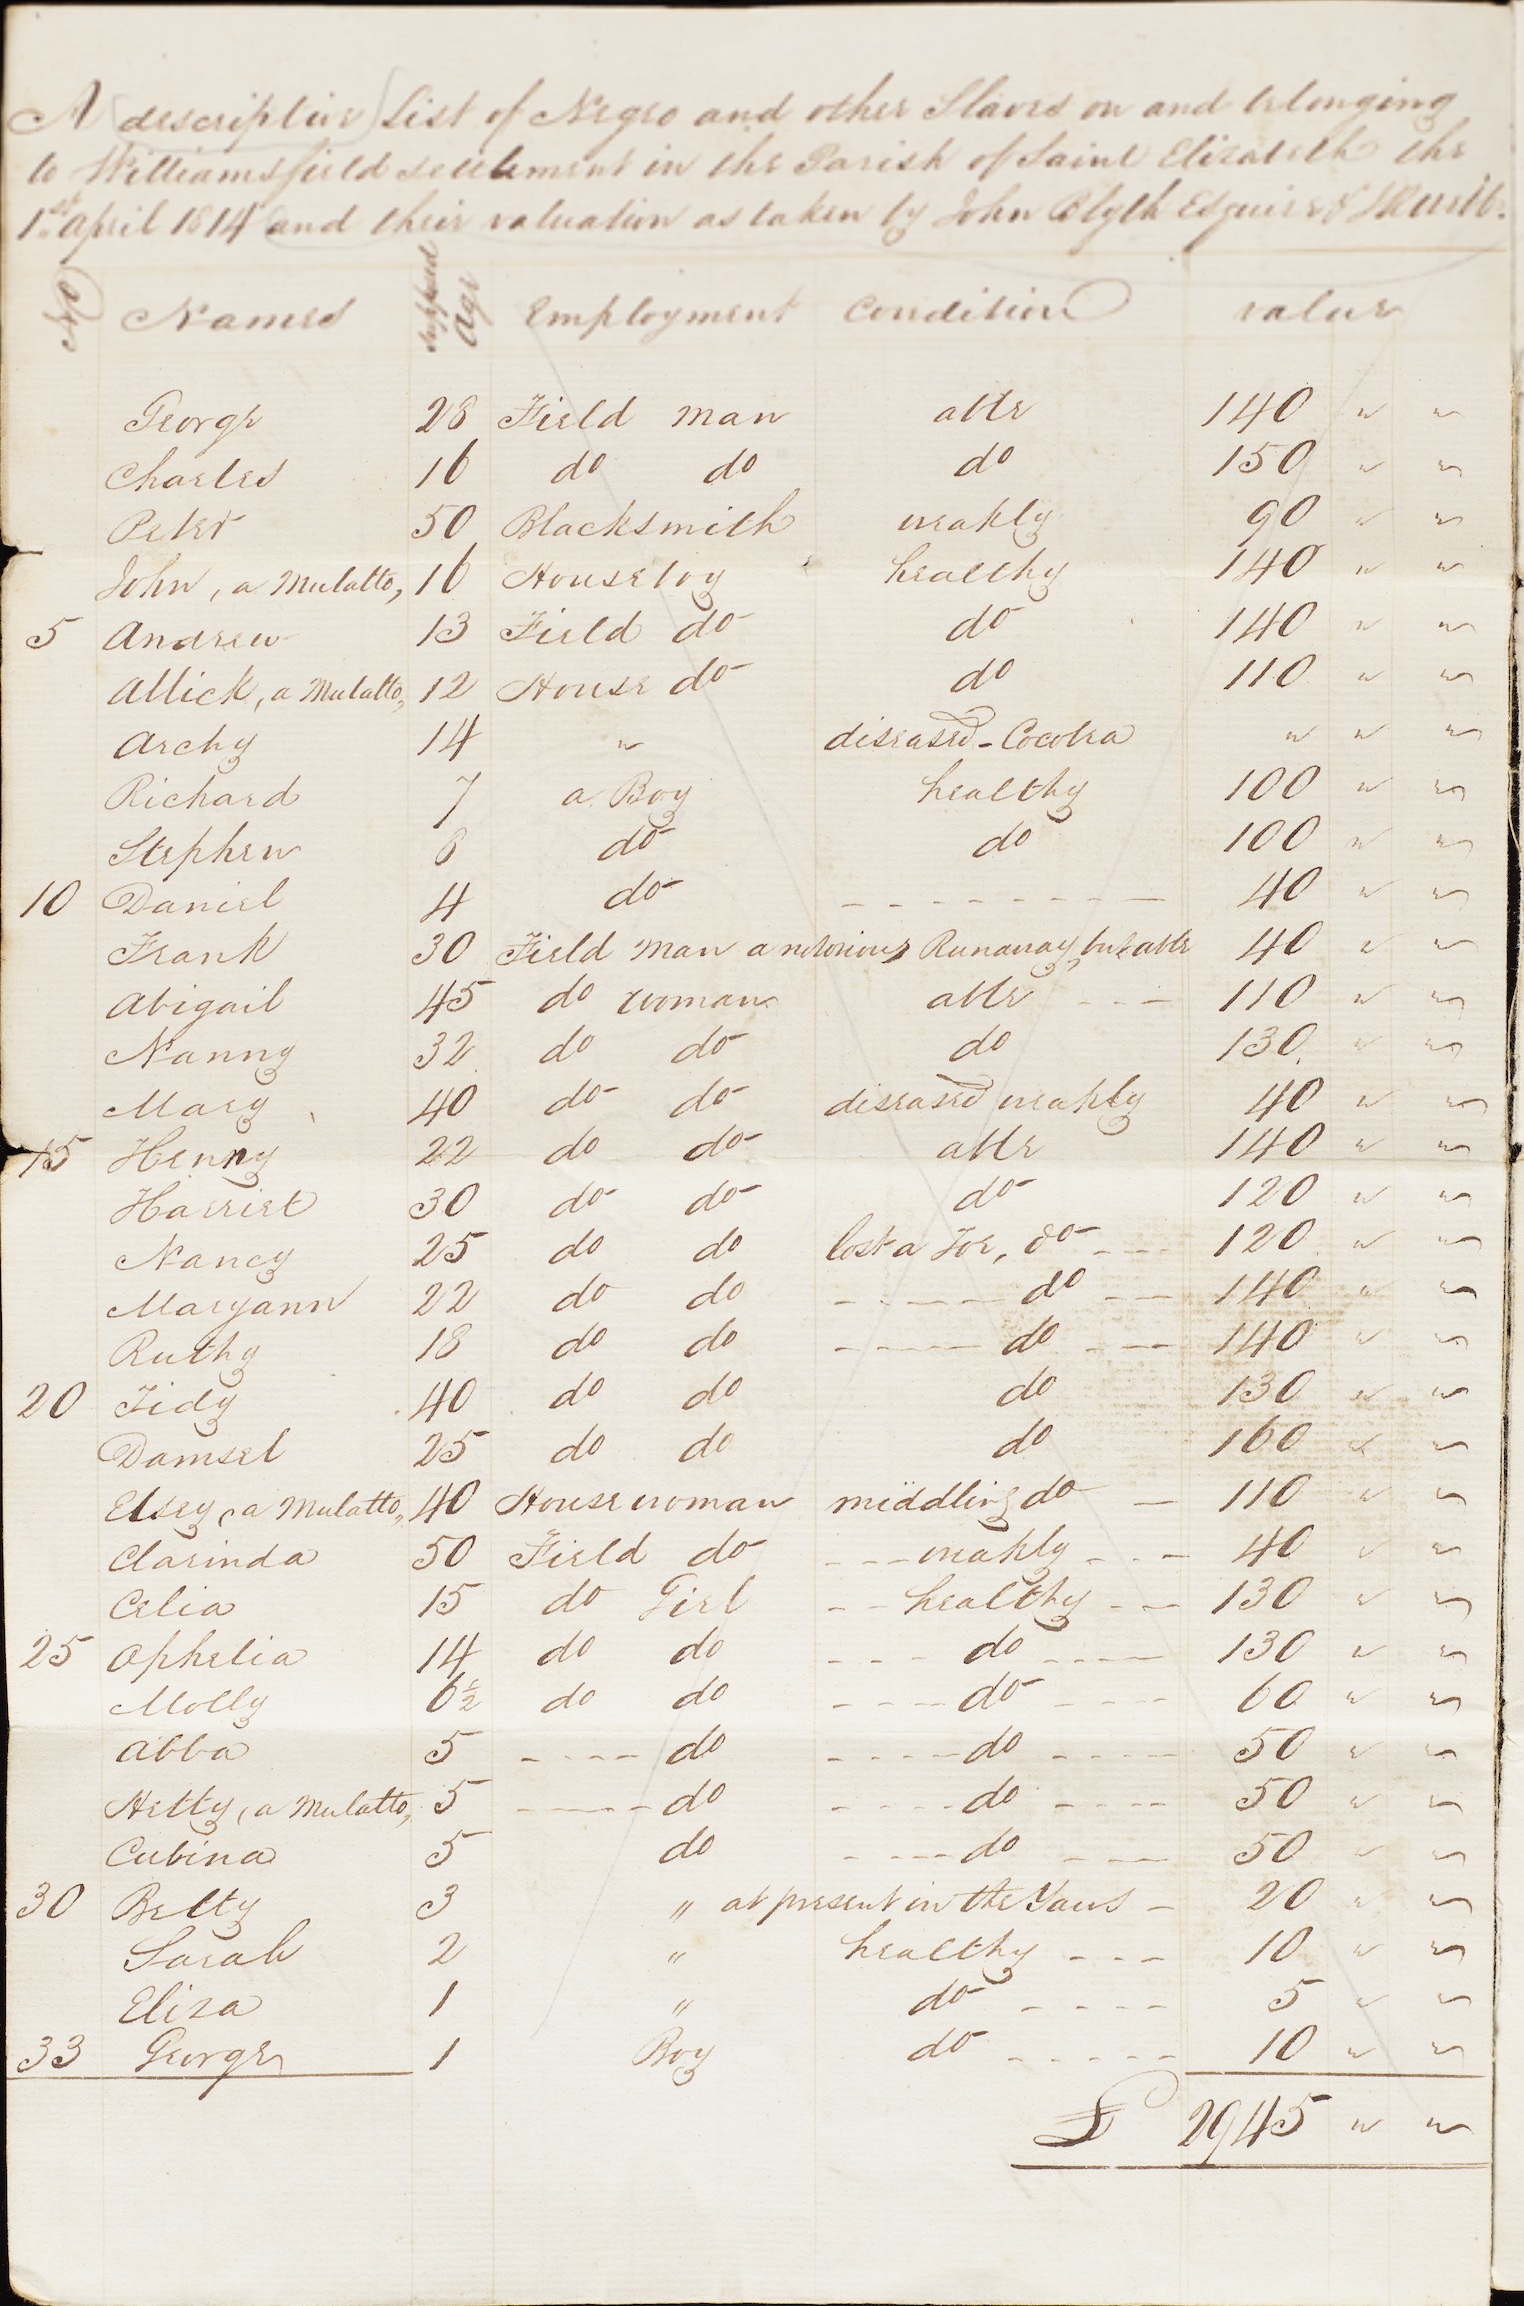 A descriptive List of Negro and other Slaves on and belonging
to Williamsfield settlement in the Parish of Saint Elizabeth the
1st April 1814 and their valuation as taken by John Blyth Esquire &
No Names supposed Age Employment Condition value
George 28 Field Man able 140 " "
Charles 16 do do do 150 " "
Peter 50 Blacksmith weakly 90 " "
John, a Mulatto, 16 House boy healthy 140 " "
5 Andrew 13 Field do do 140 " "
Allick, a Mulatto, 12 House do do 110 " "
Archy 14 " diseased - Cocobea " " "
Richard 7 a Boy healthy 100 " "
Stephen 8 do do 100 " "
10 Daniel 4 do - - - - - - - - - 40 " "
Frank 30 Field Man a notorious Runaway, but able 40 " "
Abigail 45 do woman able - - - 110 " "
Nanny 32 do do do 130 " "
Mary 40 do do diseased weakly 40 " "
15 Henny 22 do do able 140 " "
Harriet 30 do do do 120 " "
Nancy 25 do do lost a Toe, do - - - 120 " "
Maryann 22 do do - - - - - do - - - 140 " "
Ruthy 18 do do - - - - - do - - - 140 " "
20 Tidy 40 do do do 130 " "
Damsel 25 do do do 160 " "
Elsey, a Mulatto, 40 House woman middling do - 110 " "
Clarinda 50 Field do - - - weakly - - - 40 " "
Celia 15 do Girl - - healthy - - - 130 " "
25 Ophelia 14 do do - - - do - - - - 130 " "
Molly 6½ do do - - - - do - - - - 60 " "
Abba 5 - - - - do - - - - do - - - - 50 " "
Hetty, a Mulatto, 5 - - - - - do - - - - do - - - - 50 " "
Cubina 5 do - - - - do - - - 50 " "
30 Betty 3 " at present in the Yaws - 20 " "
Sarah 2 " healthy - - - 10 " "
Eliza 1 " do - - - - 5 " "
33 George 1 Boy do - - - - - 10 " "
£ 2945 " "